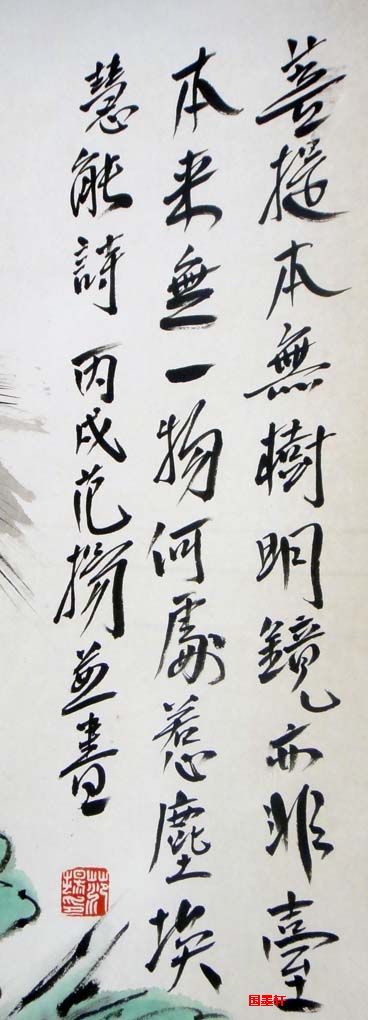 菩提本無樹明鏡亦非臺
本来無一物何處惹塵埃
慧能詩 丙戌范揚並書
范揚印
国墨轩